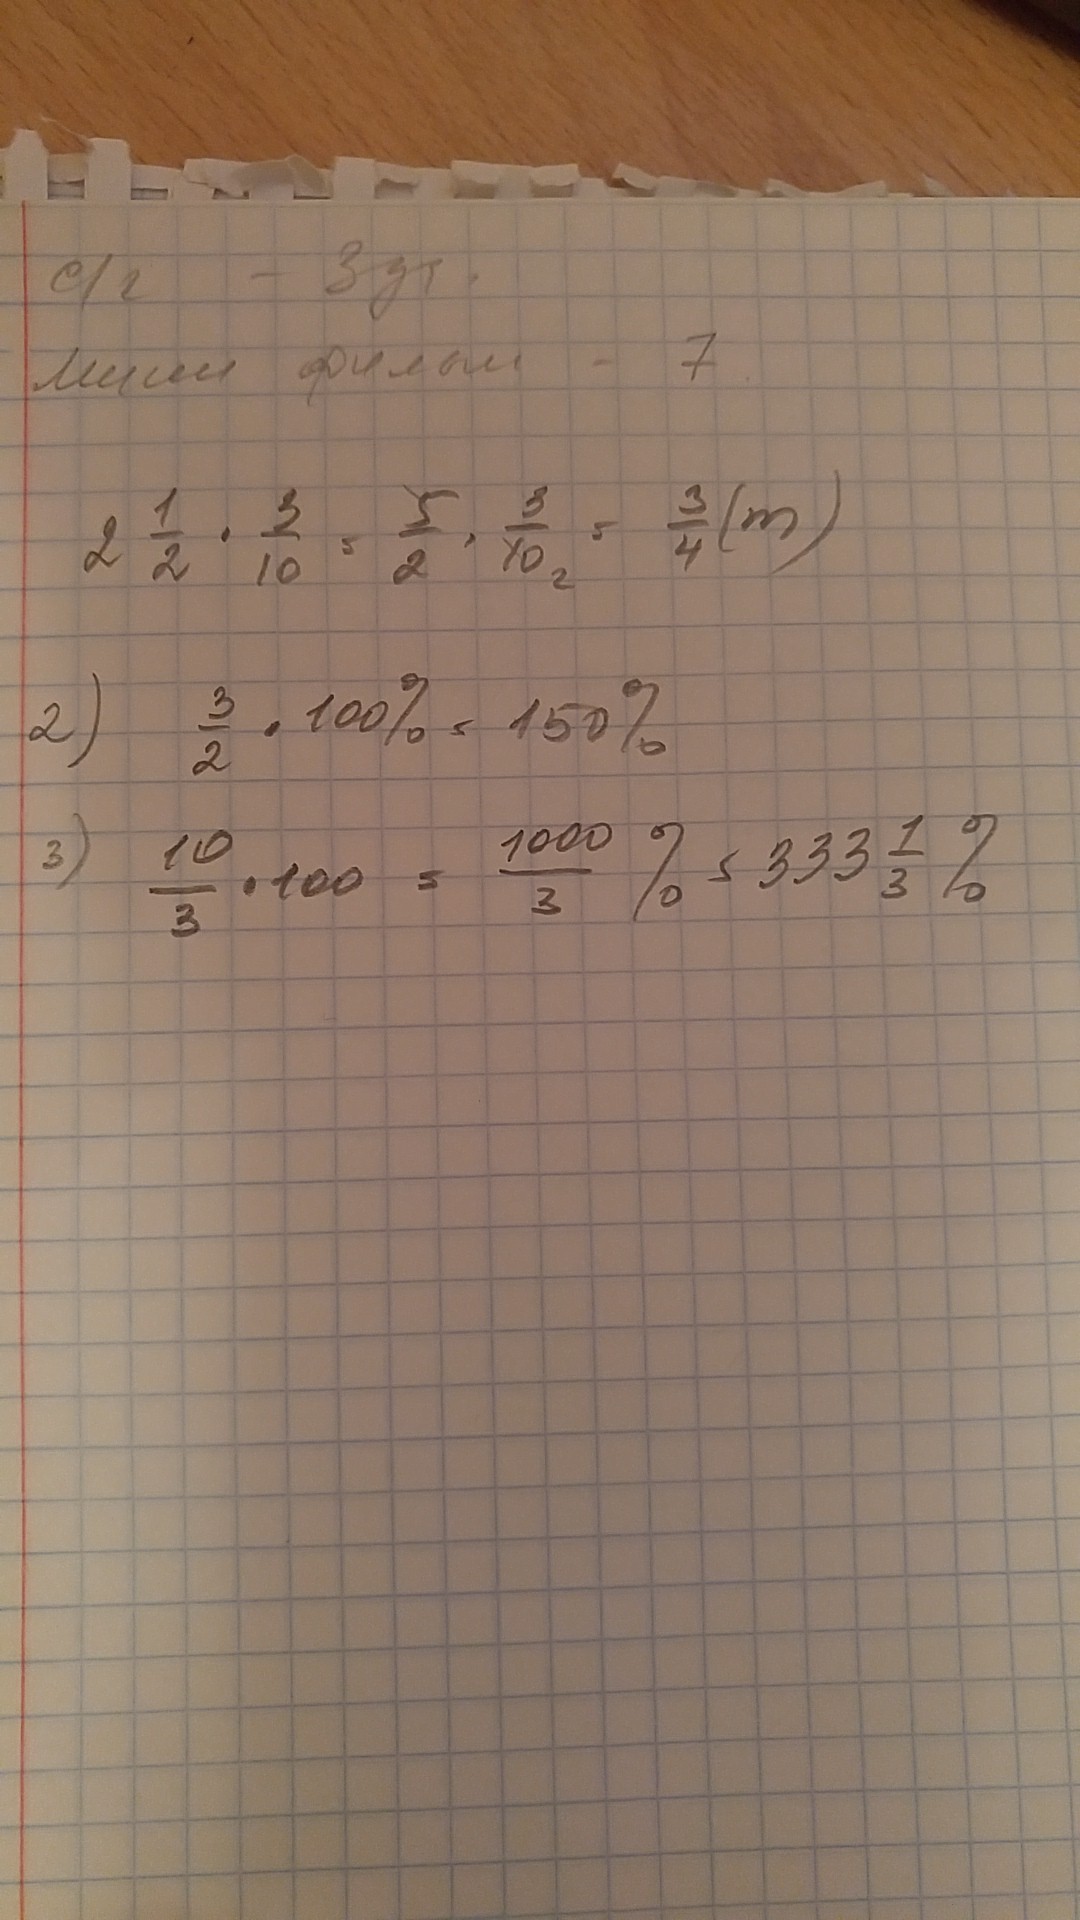 с/г - 3 
фильм - 7
2 1/2 · 3/10 = 5/2 · 3/10 2 = 3/4 (т)
2) 3/2 · 100% = 150%
3) 10/3 · 100 = 1000/3 % = 333 1/3 %